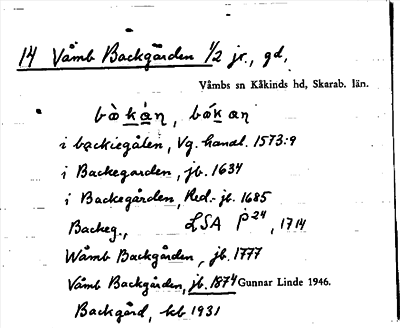 14 Våmb Backgården 1/2 jr., gd,
Våmbs sn Kåkinds hd, Skarab. län.
i backiegålen, Vg. handl. 1573:9
i Backegorden, jb. 1634
i Backegården, Red.-jb. 1685
Backeg., LSA P 24, 1714
Wåmb Backgården, jb. 1777
Våmb Backgården, jb. 1874 Gunnar Linde 1946.
Backgård, kb 1931